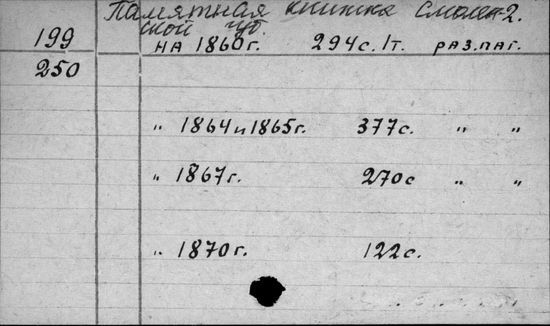 Памятная книжка Смолен- 2.
ской губ.
199 на 1860г. 294с. 1т. раз.паг.
250
„ 1864 и 1865г. 377с. „ „
„ 1867г. 270с „ „
„ 1870г. 122с.